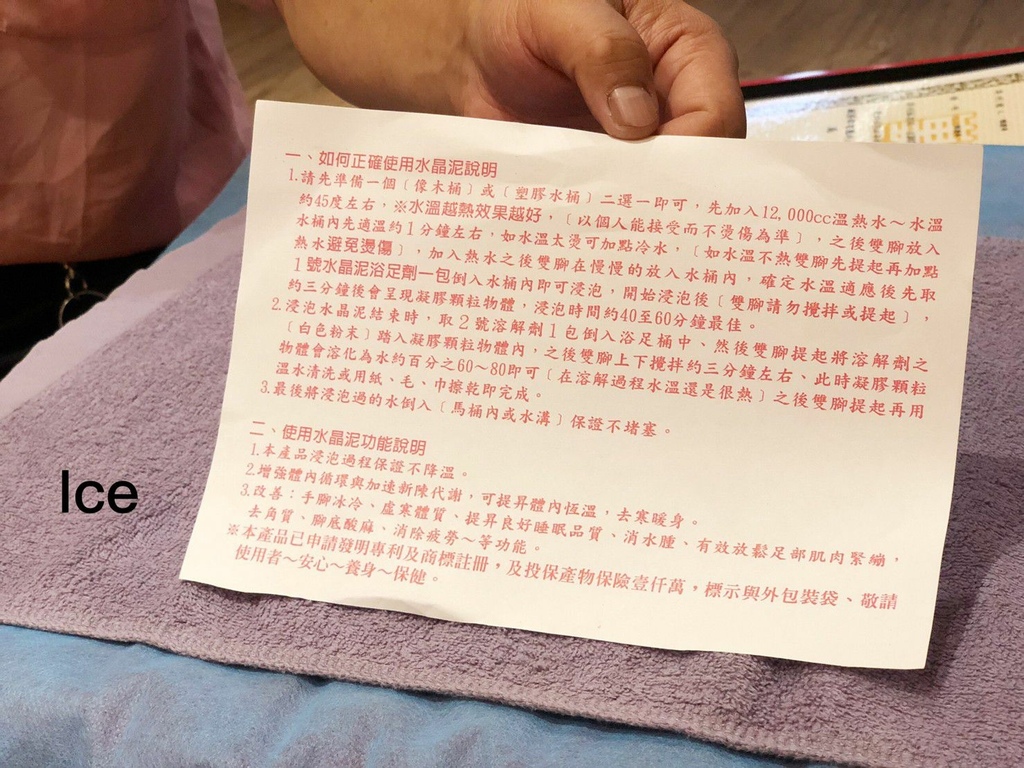 一、如何正確使用水晶泥說明
1.請先準備一個〔像木桶〕或〔塑膠水桶〕二選一即可，先加入12,000cc溫熱水～水溫
約45度左右，※水溫越熱效果越好，〔以個人能接受而不燙傷為準〕，之後雙腳放入
水桶內先適溫約1分鐘左右，如水溫太燙可加點冷水，〔如水溫不熱雙腳先提起再加點
熱水避免燙傷〕，加入熱水之後雙腳在慢慢的放入水桶內，確定水溫適應後先取
1號水晶泥浴足劑一包倒入水桶內即可浸泡，開始浸泡後〔雙腳請勿攪拌或提起〕，
約三分鐘後會呈現凝膠顆粒物體，浸泡時間約40至60分鐘最佳。
2.浸泡水晶泥結束時，取2號溶解劑1包倒入浴足桶中、然後雙腳提起將溶解劑之
〔白色粉末〕踏入凝膠顆粒物體內，之後雙腳上下攪拌約三分鐘左右、此時凝膠顆粒
物體會溶化為水約百分之60～80即可〔在溶解過程水溫還是很熱〕之後雙腳提起再用
溫水清洗或用紙、毛、巾擦乾即完成。
3.最後將浸泡過的水倒入〔馬桶內或水溝〕保證不堵塞。
二、使用水晶泥功能說明
1.本產品浸泡過程保證不降溫。
2.增強體內循環與加速新陳代謝，可提昇體內恆溫，去寒暖身。
3.改善：手腳冰冷、虛寒體質、提昇良好睡眠品質、消水腫、有效放鬆足部肌肉緊繃，
去角質、腳底酸麻、消除疲勞～等功能。
※本產品已申請發明專利及商標註冊，及投保產物保險壹仟萬，標示與外包裝袋、敬請
使用者～安心～養身～保健。
Ice